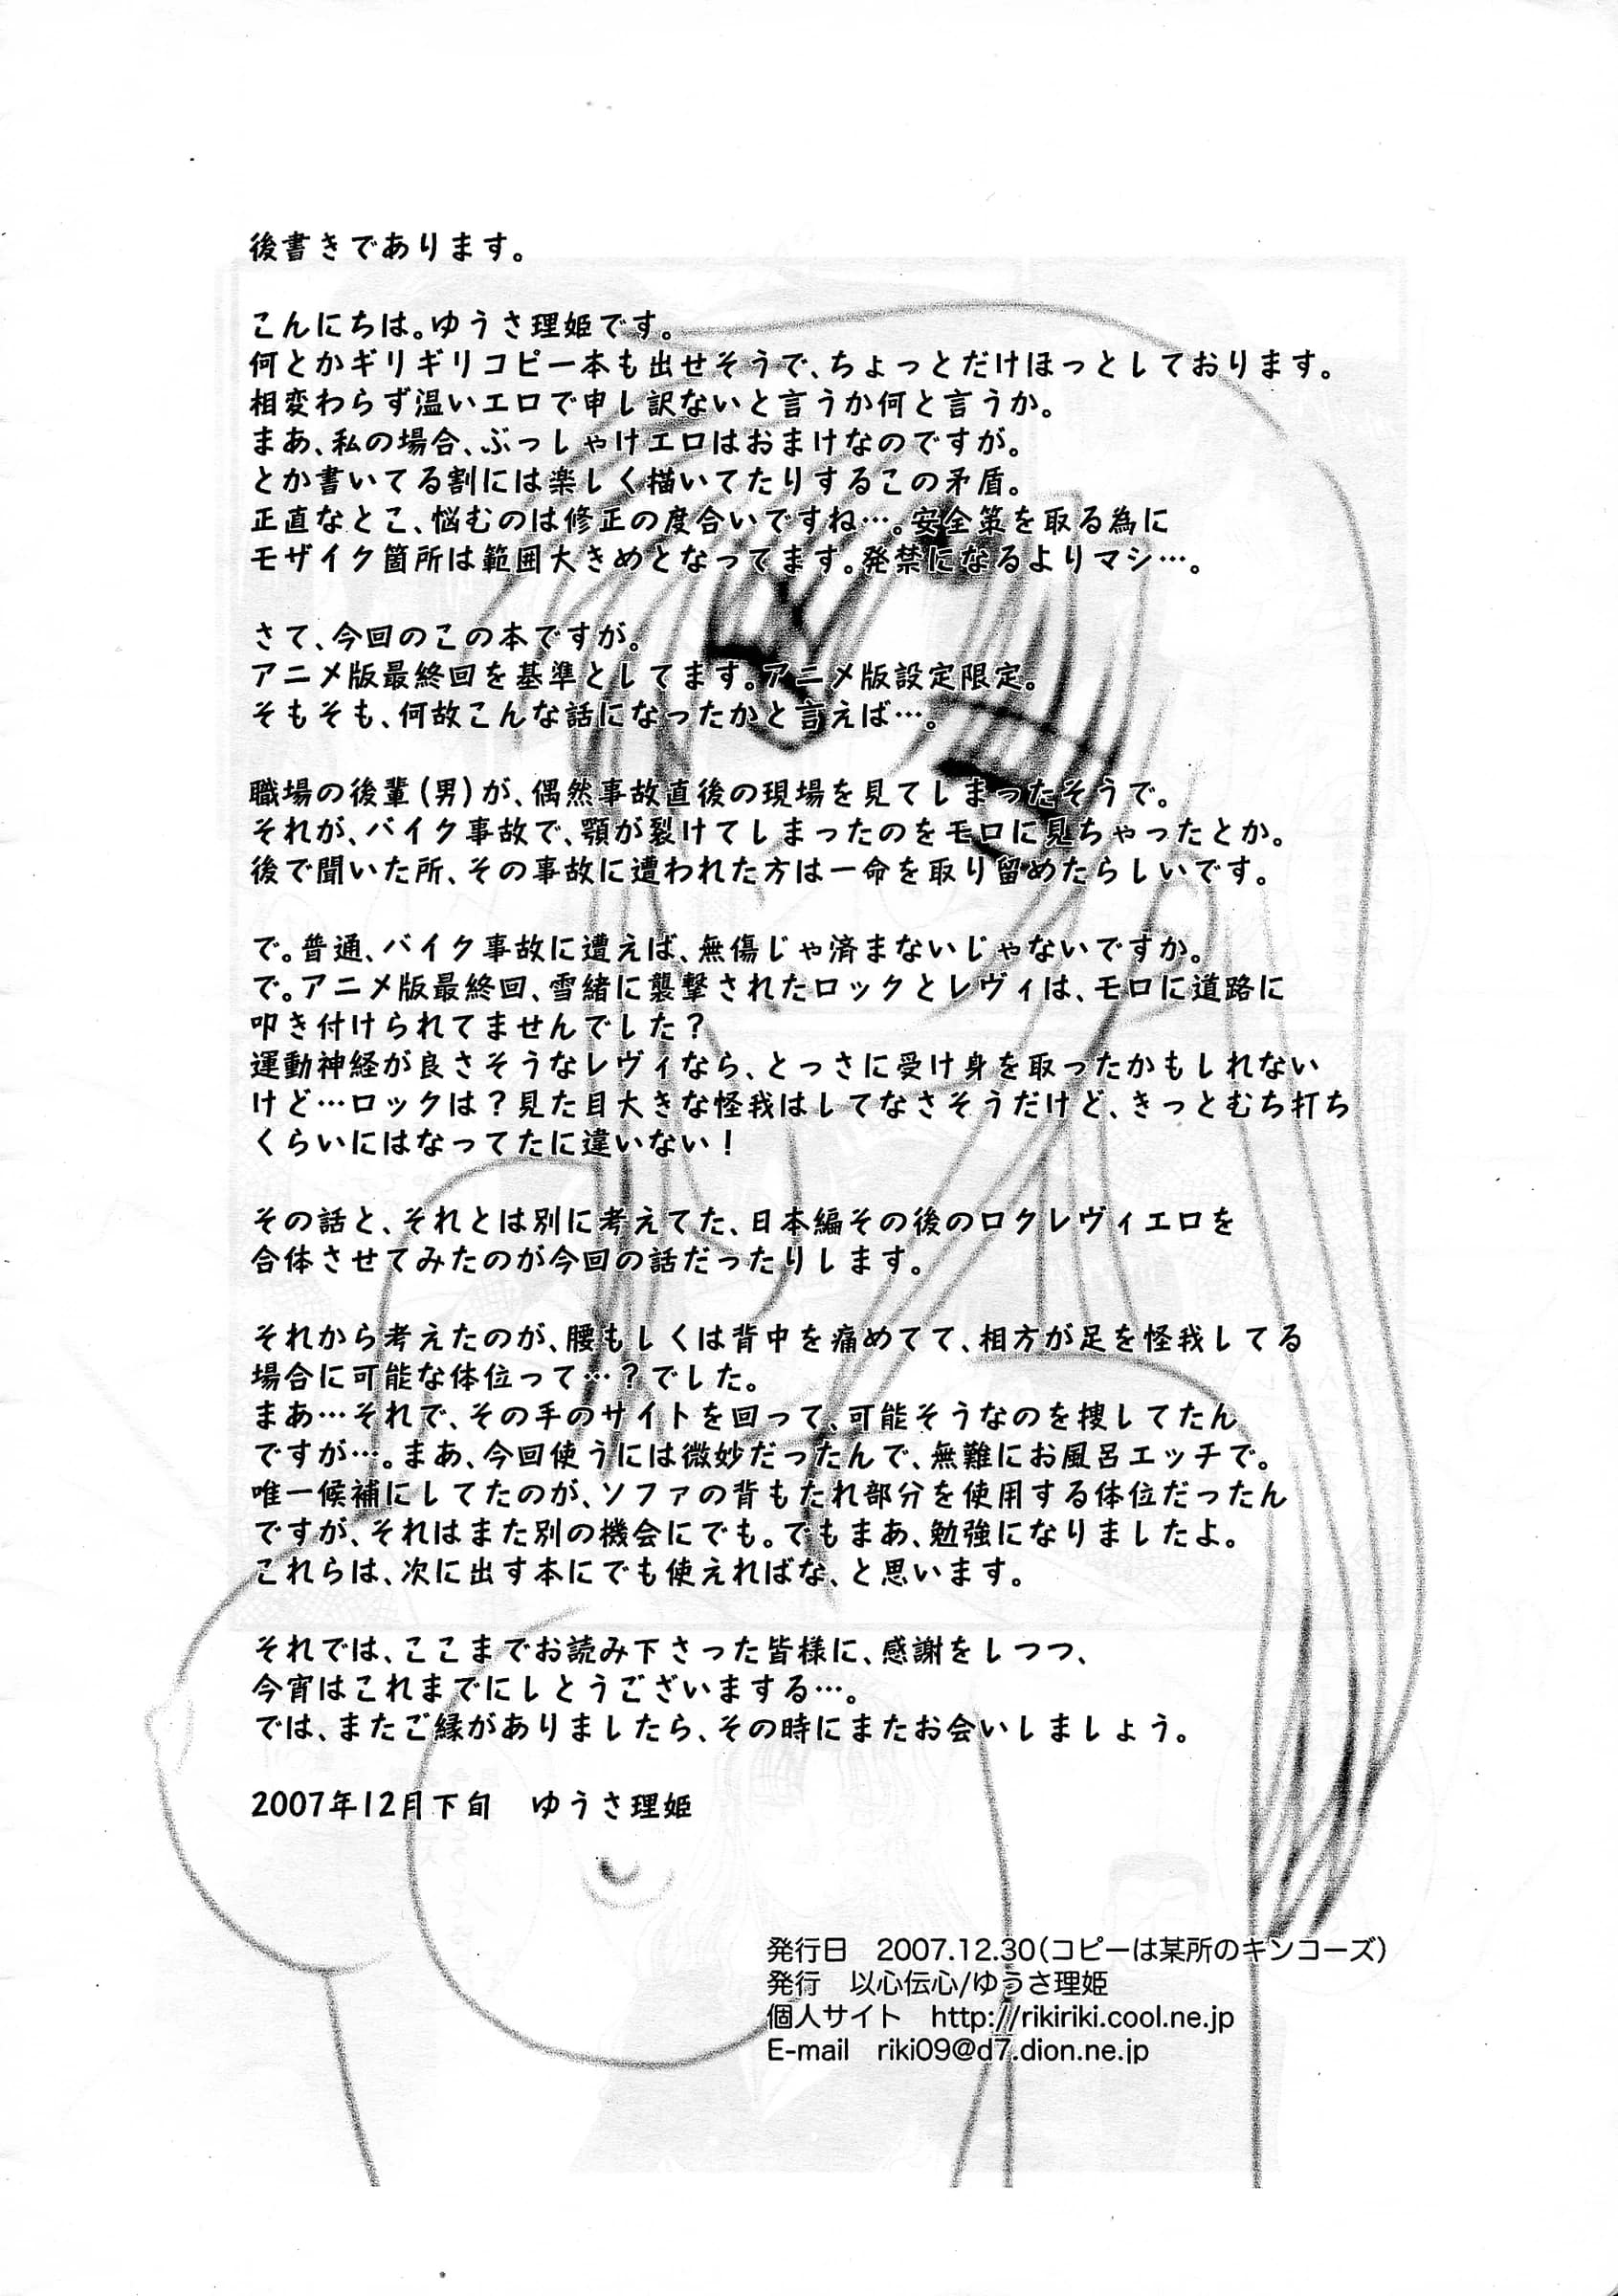 後書きであります。
こんにちは。ゆうさ理姫です。
何とかギリギリコピー本も出せそうで、ちょっとだけほっとしております。
相変わらず温いエロで申し訳ないと言うか何と言うか。
まあ、私の場合、ぶっしゃけエロはおまけなのですが。
とか書いてる割には楽しく描いてたりするこの矛盾。
正直なとこ、悩むのは修正の度合いですね…。安全策を取る為に
モザイク箇所は範囲大きめとなってます。発禁になるよりマシ…。
さて、今回のこの本ですが。
アニメ版最終回を基準としてます。アニメ版設定限定。
そもそも、何故こんな話になったかと言えば…。
職場の後輩(男)が、偶然事故直後の現場を見てしまったそうで。
それが、バイク事故で、顎が裂けてしまったのをモロに見ちゃったとか。
後で聞いた所、その事故に遭われた方は一命を取り留めたらしいです。
で。普通、バイク事故に遭えば、無傷じゃ済まないじゃないですか。
で。アニメ版最終回、雪緒に襲撃されたロックとレヴィは、モロに道路に
叩き付けられてませんでした?
運動神経が良さそうなレヴィなら、とっさに受け身を取ったかもしれない
けど…ロックは?見た目大きな怪我はしてなさそうだけど、きっとむち打ち
くらいにはなってたに違いない!
その話と、それとは別に考えてた、日本編その後のロクレヴィエロを
合体させてみたのが今回の話だったりします。
それから考えたのが、腰もしくは背中を痛めてて、相方が足を怪我してる
場合に可能な体位って…?でした。
まあ…それで、その手のサイトを回って、可能そうなのを捜してたん
ですが…。まあ、今回使うには微妙だったんで、無難にお風呂エッチで。
唯一候補にしてたのが、ソファの背もたれ部分を使用する体位だったん
ですが、それはまた別の機会にでも。でもまあ、勉強になりましたよ。
これらは、次に出す本にでも使えればな、と思います。
それでは、ここまでお読み下さった皆様に、感謝をしつつ、
今宵はこれまでにしとうございまする…。
では、またご縁がありましたら、その時にまたお会いしましょう。
2007年12月下旬 ゆうさ理姫
発行日 2007.12.30(コピーは某所のキンコーズ)
発行 以心伝心/ゆうさ理姫
個人サイト http://rikiriki.cool.ne.jp
E-mail riki09@d7.dion.ne.jp